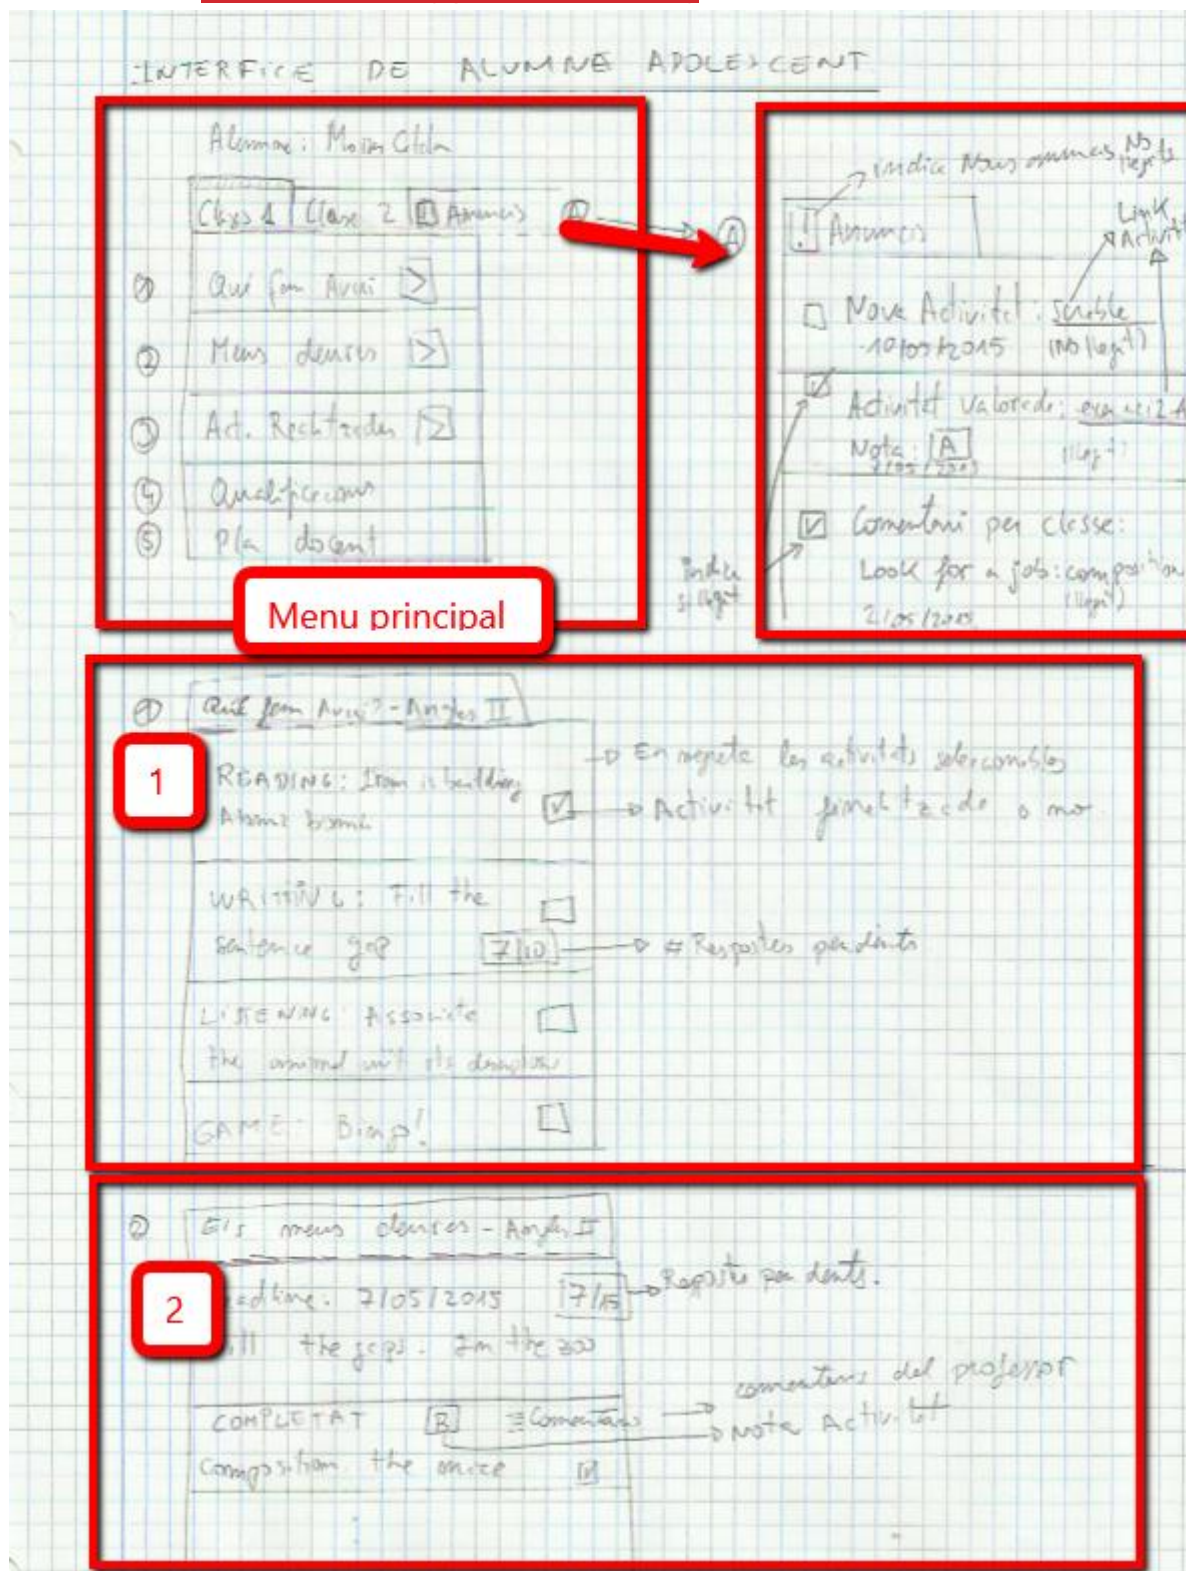 INTERFICE DE ALUMNE ADOLESCENT
Alumne:
Class 1 Classe 2 Anuncis A
1 Qué fem Avui >
2 Meus deures >
3 Act. >
4
5 Pla docent
Menu principal
A
indica Nous No llegits
! Anuncis
Link Activitat
Nova Activitat: Scrable
10/05/2015 (No llegit)
Activitat Valorada:
Nota: A (llegit)
Comentari per classe:
Look for a job: composition
2/05/2015 (llegit)
Indica si llegit
1 Qué fem Avui? - Angles II
1
READING: Iran is building
Atomic bomb
les activitats seleccionables
Activitat finalitzada o no
WRITTING: Fill the
sentence gap 7/10 # Respostes pendents
LISTENING: Associate
the animal with its
GAME: Bingo!
2 Els meus deures - Angles II
2
7/05/2015 7/15 Respostes pendents.
the gaps. In the zoo
COMPLETAT B Comentaris
comentaris del professor
Nota Activitat
Composition the mice